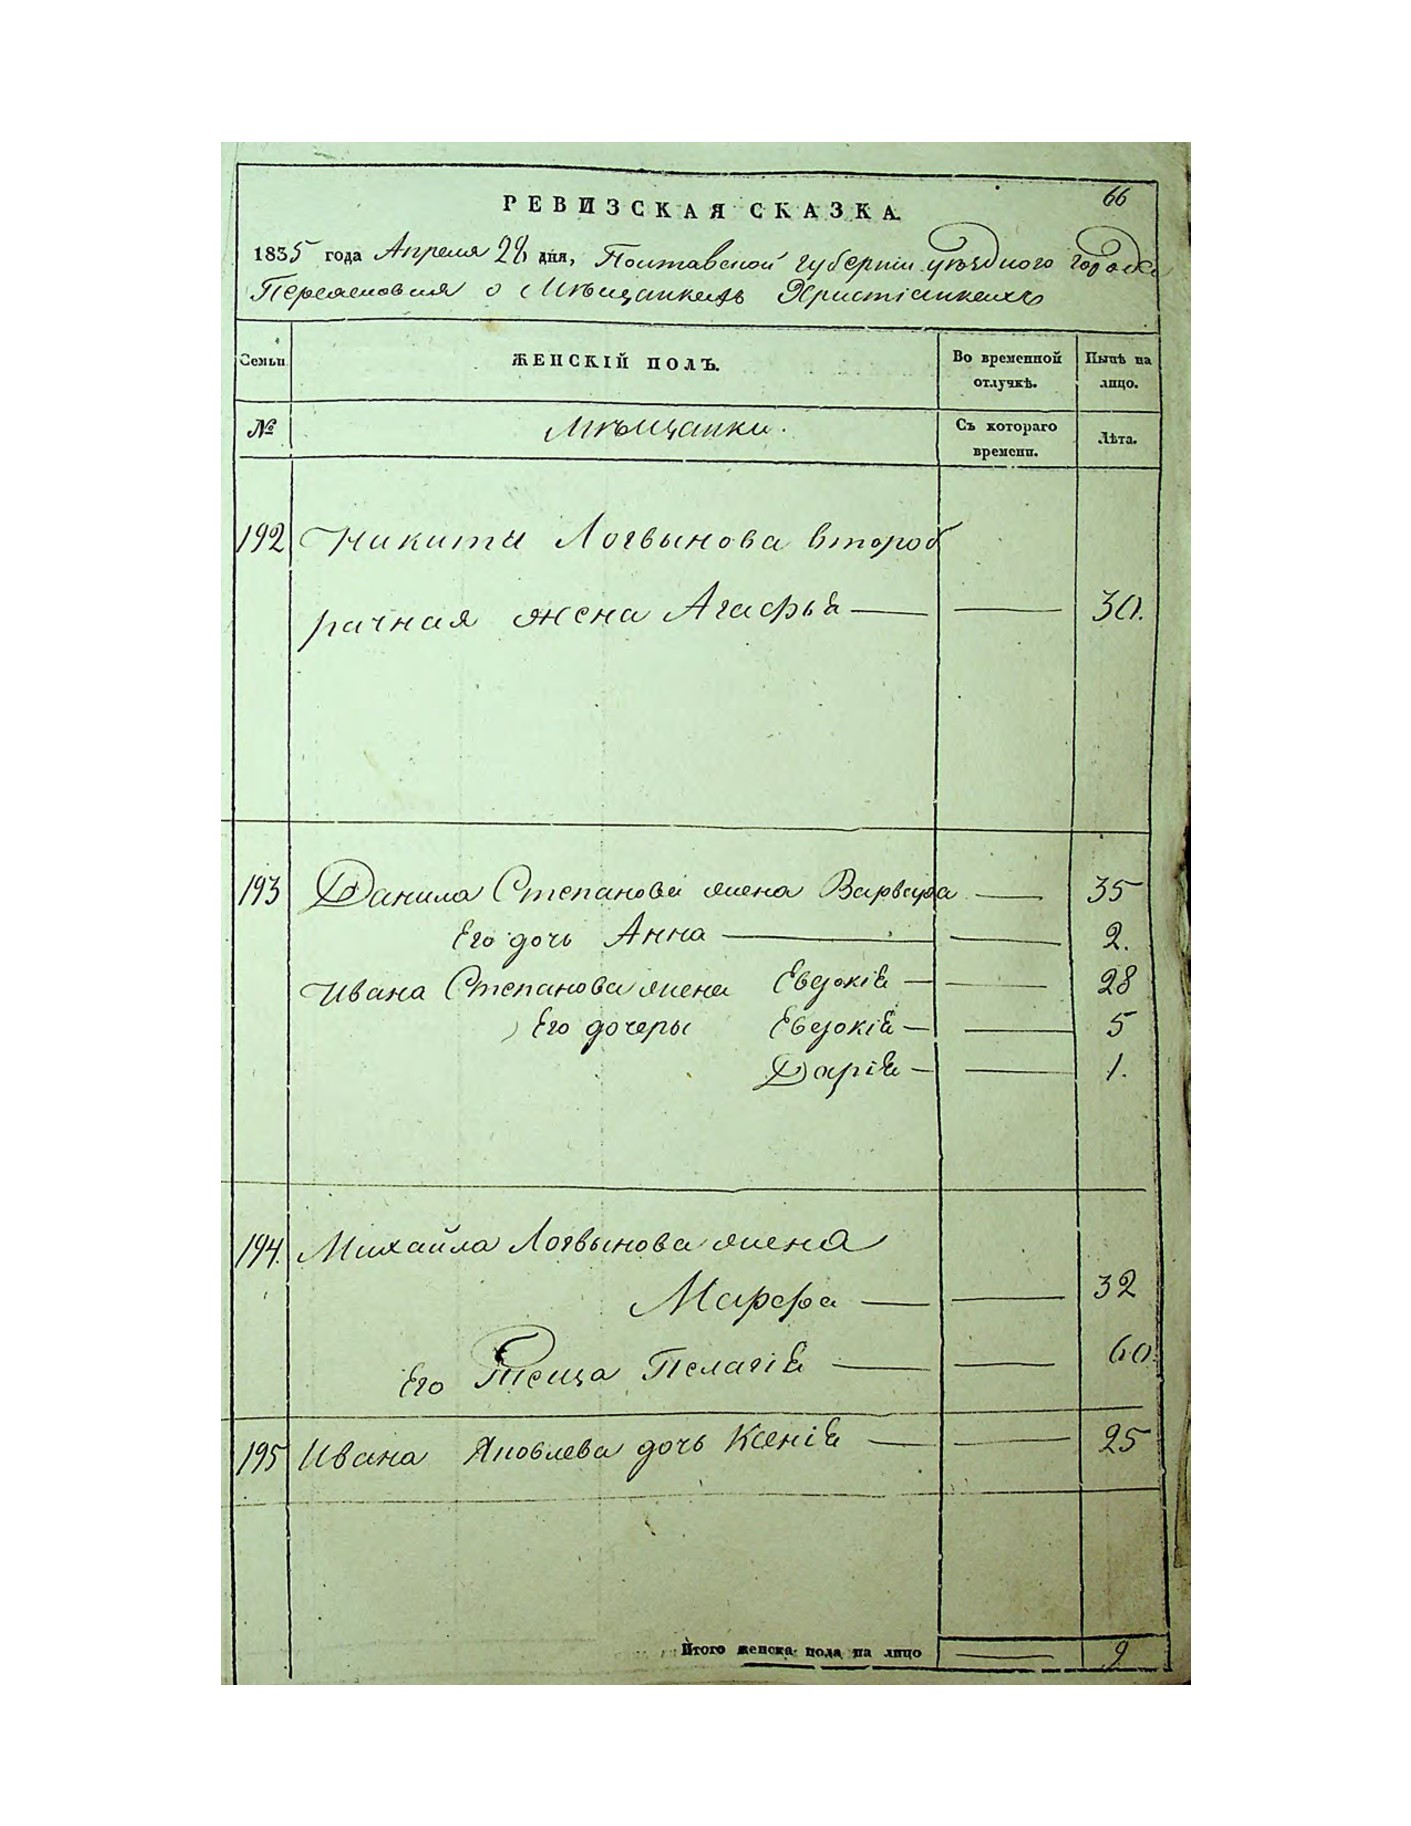 66
РЕВИЗСКАЯ СКАЗКА.
1835 года Апреля 28 дня, Полтавской губернiи уѣздного города
Переяслова о Мѣщанкахъ Христiанкахъ
Семьи
ЖЕНСКIЙ ПОЛЪ.
Во временной отлучкѣ.
Нынѣ на лицо.
№
Мѣщанки.
Съ котораго времени.
Лѣта.
192 Никиты Логвынова второб
рачная жена Агафья — — 30.
193 Данила Степанова жена Варвара — 35
Его дочь Анна — — 2.
Ивана Степанова жена Евдокiя — — 28
Его дочеры Евдокiя — — 5
Дарiя — — 1.
194. Михайла Логвынова жена
Марфа — — 32
Его Теща Пелагiя — — 60.
195 Ивана Яковлева дочь Ксенiя — — 25
Итого женска пола на лицо — 9